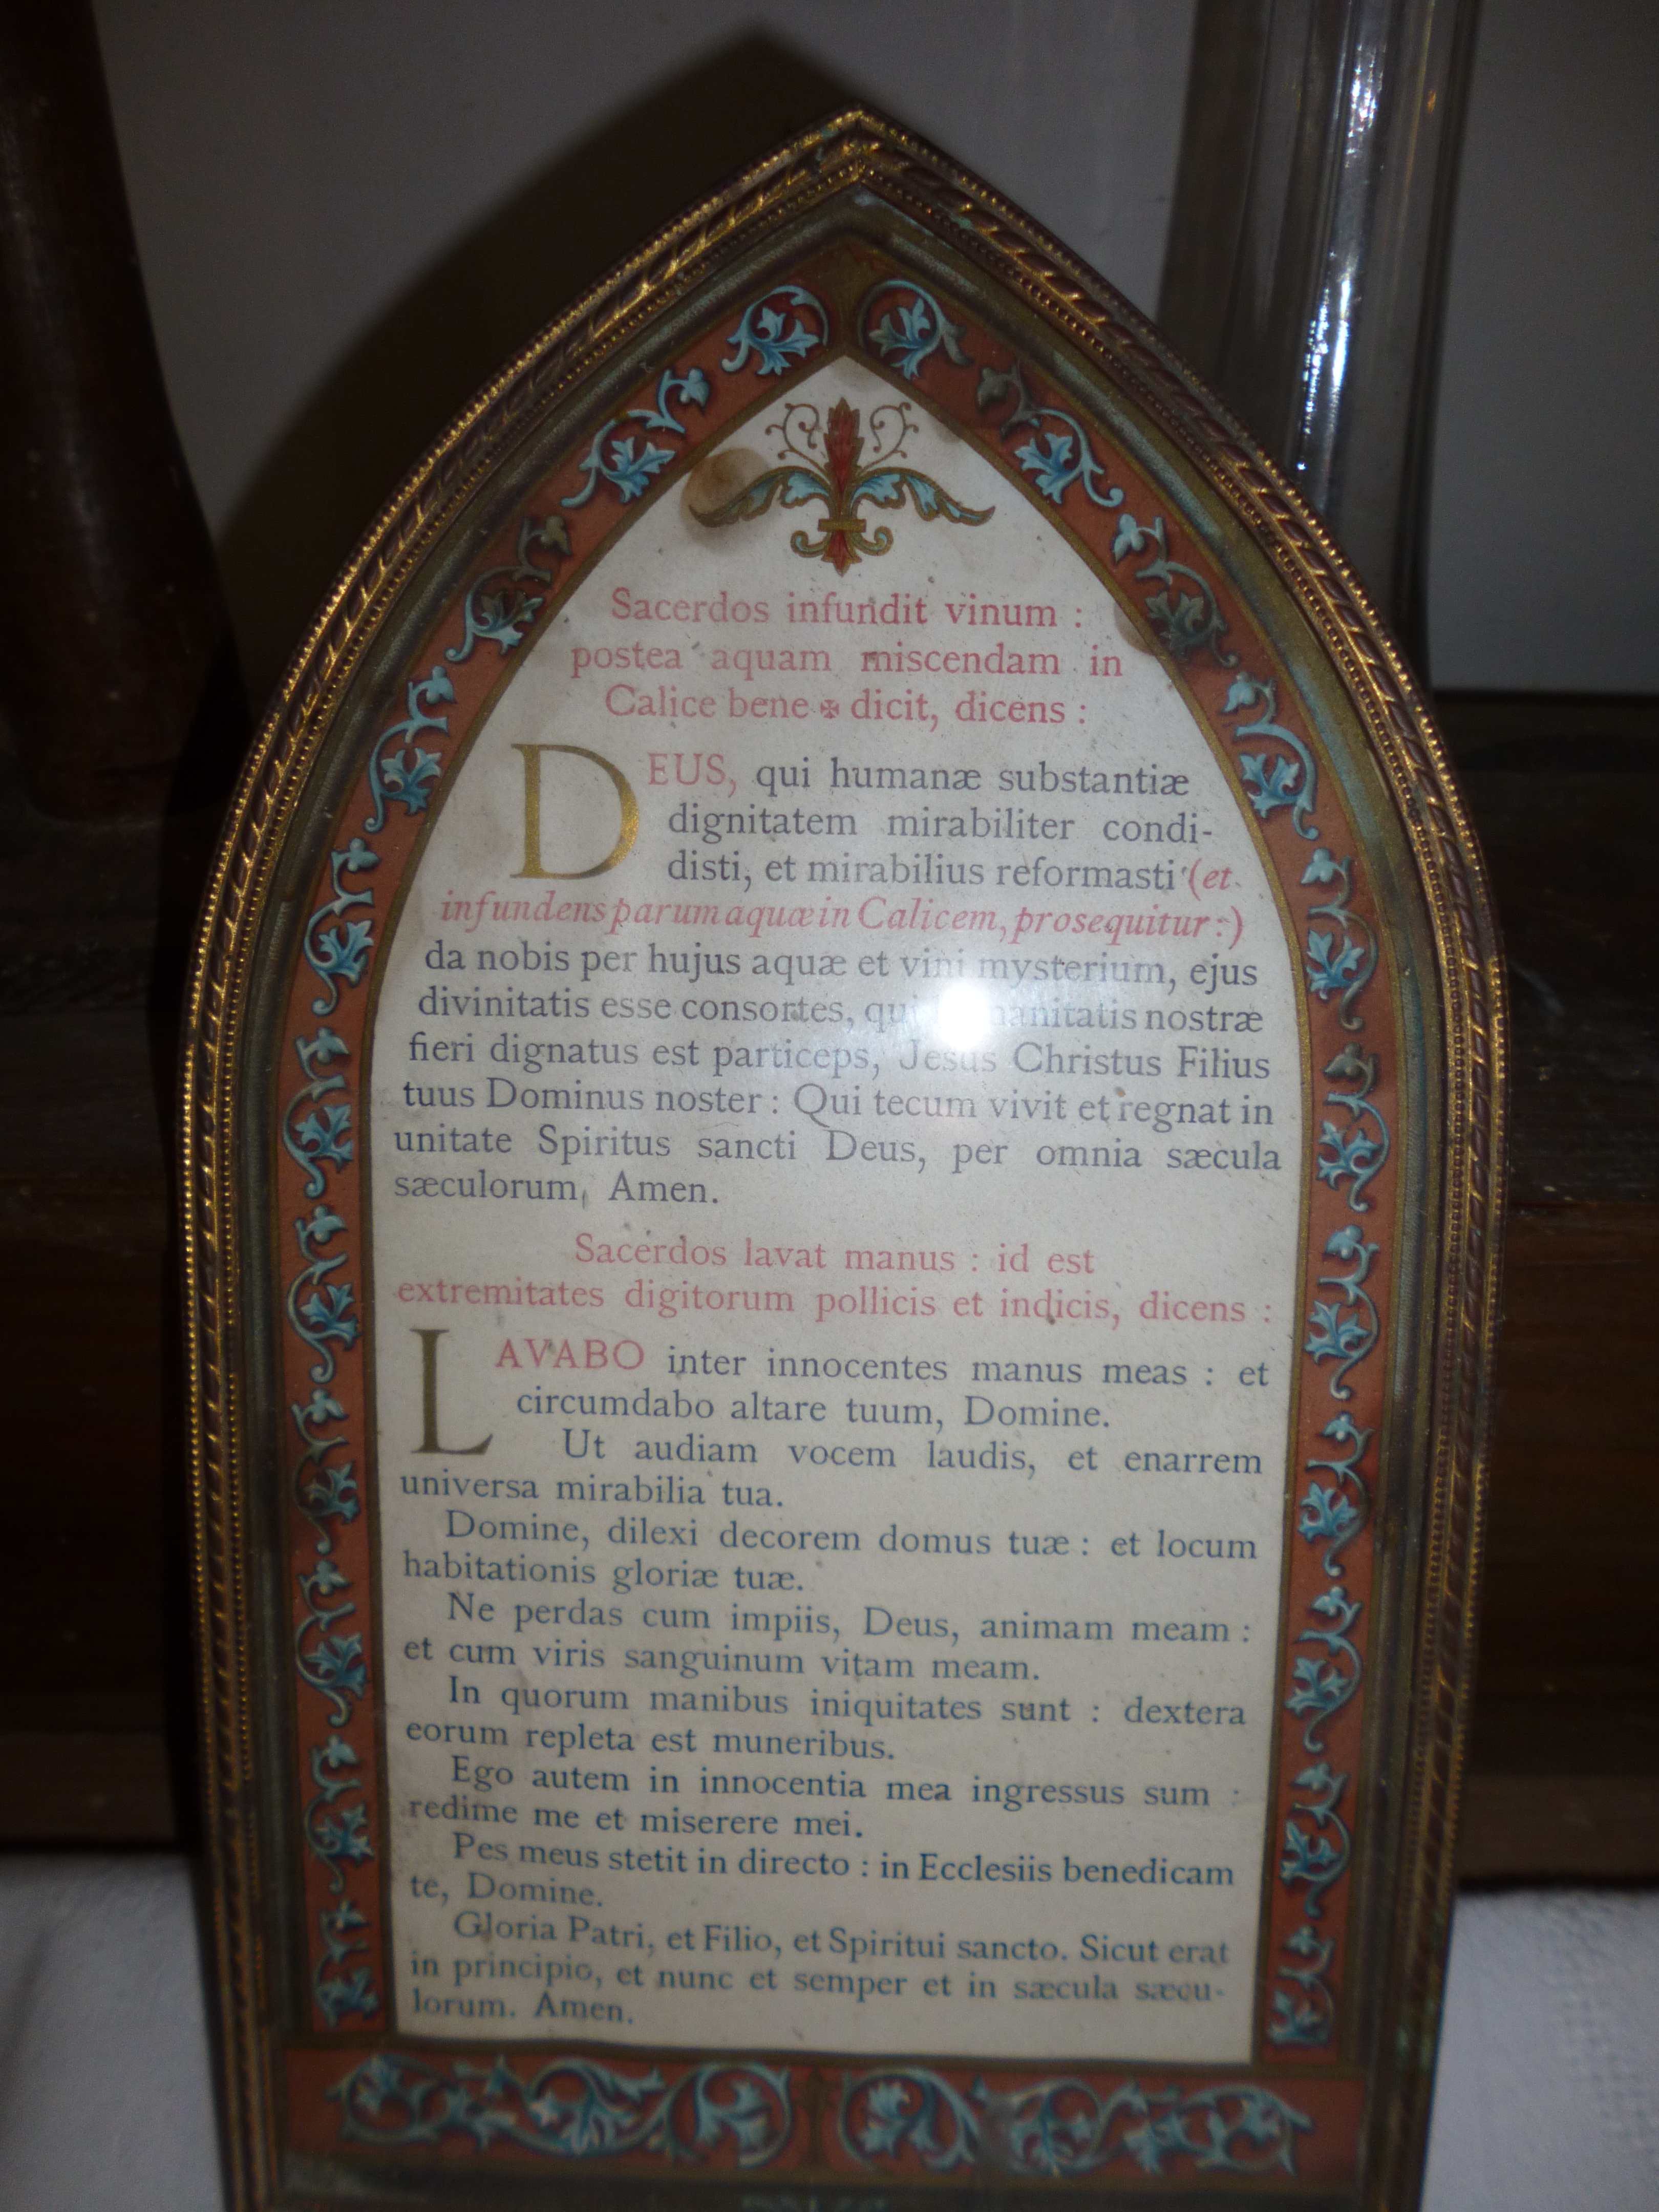 Sacerdos infundit vinum :
postea aquam miscendam in
Calice bene ✠ dicit, dicens :
DEUS, qui humanæ substantiæ
dignitatem mirabiliter condi-
disti, et mirabilius reformasti (et
infundens parum aquæ in Calicem, prosequitur :)
da nobis per hujus aquæ et vini mysterium, ejus
divinitatis esse consortes, qui nostræ
fieri dignatus est particeps, Jesus Christus Filius
tuus Dominus noster : Qui tecum vivit et regnat in
unitate Spiritus sancti Deus, per omnia sæcula
sæculorum, Amen.
Sacerdos lavat manus : id est
extremitates digitorum pollicis et indicis, dicens :
LAVABO inter innocentes manus meas : et
circumdabo altare tuum, Domine.
Ut audiam vocem laudis, et enarrem
universa mirabilia tua.
Domine, dilexi decorem domus tuæ : et locum
habitationis gloriæ tuæ.
Ne perdas cum impiis, Deus, animam meam :
et cum viris sanguinum vitam meam.
In quorum manibus iniquitates sunt : dextera
eorum repleta est muneribus.
Ego autem in innocentia mea ingressus sum :
redime me et miserere mei.
Pes meus stetit in directo : in Ecclesiis benedicam
te, Domine.
Gloria Patri, et Filio, et Spiritui sancto. Sicut erat
in principio, et nunc et semper et in sæcula sæcu-
lorum. Amen.